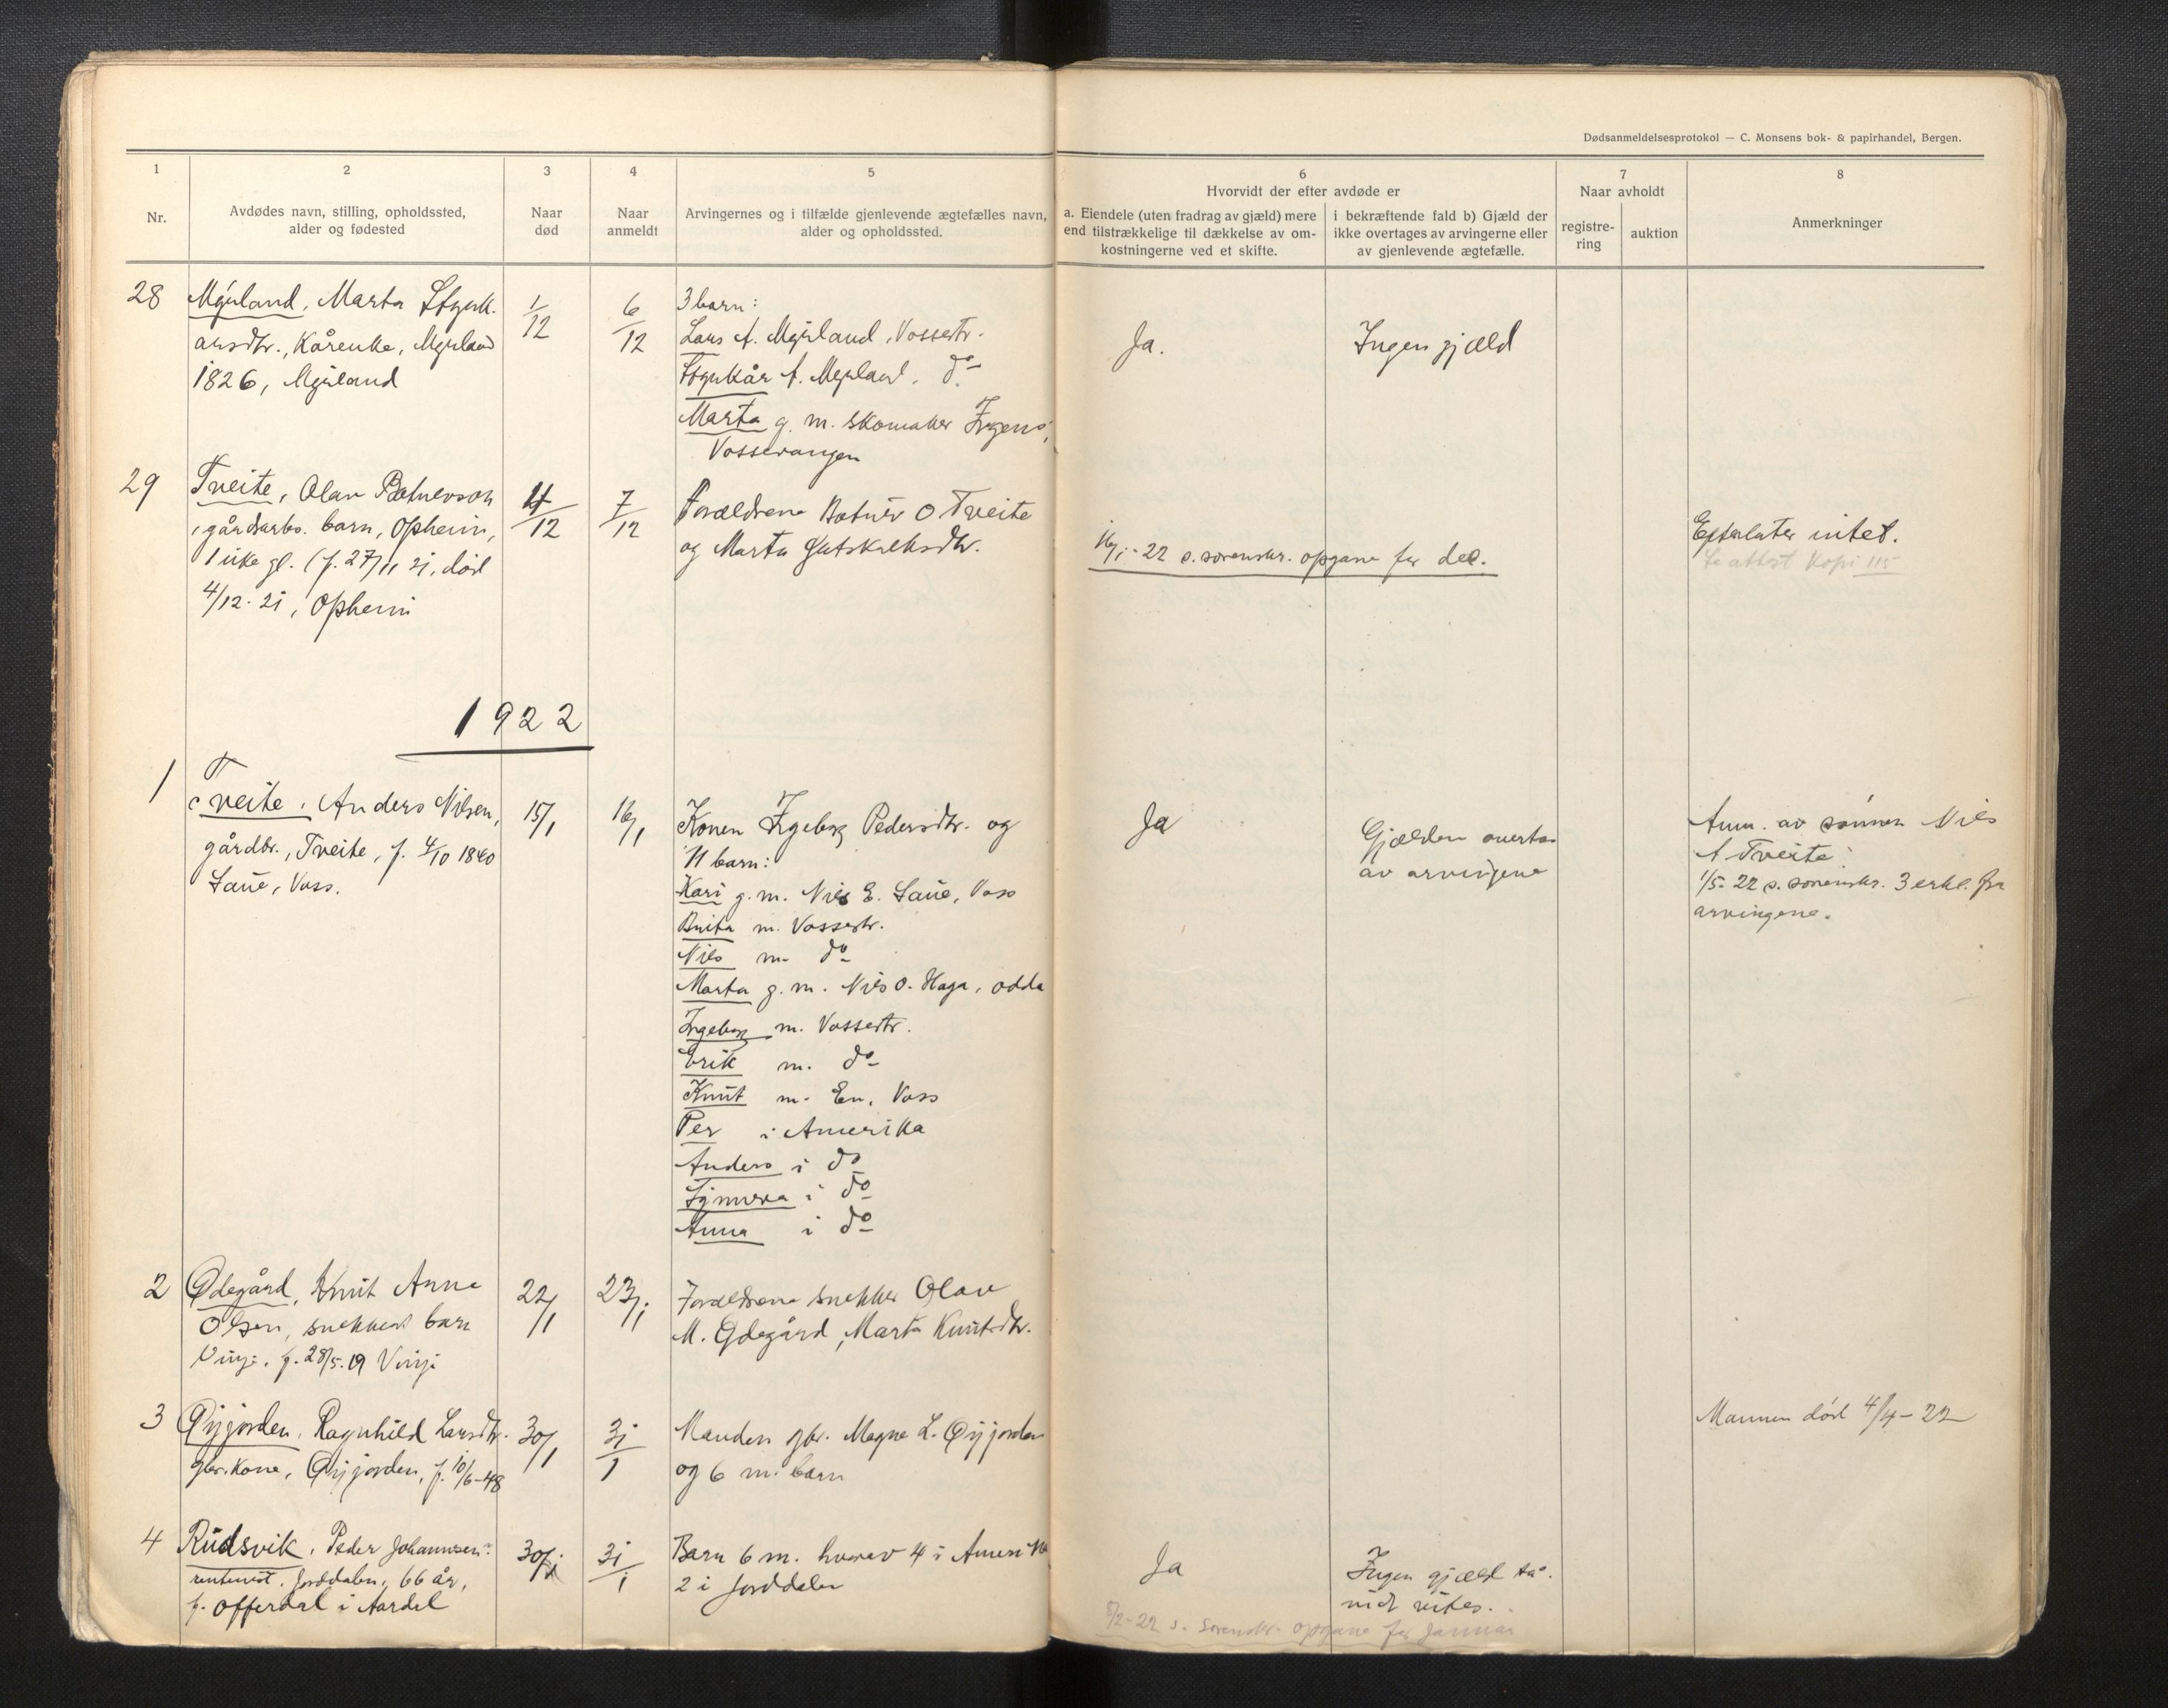 Dødsanmeldelsesprotokol — C. Monsens bok- & papirhandel, Bergen.
1
Nr.
2
Avdødes navn, stilling, opholdssted,
alder og fødested
3
Naar
død
4
Naar
anmeldt
5
Arvingernes og i tilfælde gjenlevende ægtefælles navn,
alder og opholdssted.
6
Hvorvidt der efter avdøde er
a. Eiendele (uten fradrag av gjæld) mere
end tilstrækkelige til dækkelse av om-
kostningerne ved et skifte.
i bekræftende fald b) Gjæld der
ikke overtages av arvingerne eller
av gjenlevende ægtefælle.
7
Naar avholdt
registre-
ring
auktion
8
Anmerkninger
28
Mýrland, Marta Styrk-
arsdtr., Kårenke, Myrland
1826, Mýrland
1/12
6/12
3 barn:
Lars A. Mýrland, Vossestr.
Styrkår A. Myrland, do
Marta g. m. skomaker
Vossevangen
Ja.
Ingen gjæld
29
Tveite, Olav Botnevson
gårdsarb. barn, Opheim,
1 uke gl. (f. 27/11 21, død
4/12-21, Opheim
4/12
7/12
Forældrene Botnev O Tveite
og Marta Gutskalksdtr.
16/1-22 s. sorenskr. opgave for des.
Efterlater intet.
Se attest Kopi 115
1922
1
Tveite, Anders Nilsen,
gårdbr., Tveite, f. 4/10 1840
Saue, Voss.
15/1
16/1
Konen Ingeborg Pedersdtr. og
11 barn:
Kari g. m. Nils E. Saue, Voss
Brita m. Vossestr.
Nils m. do
Marta g. m. Nils O. Haga, Odda
Ingeborg m. Vossestr.
Erik m. do
Knut m. En, Voss
Per i Amerika
Anders i do
Synneva i do
Anna i do
Ja
Gjælden overtas
av arvingene
Anm. av sønnen Nils
A Tveite.
1/5-22 s. sorenskr. 3 erkl. fra
arvingene.
2
Ødegård, Knut Arne
Olsen, snekkers barn
Vinje, f. 28/5-19 Vinje
22/1
23/1
Forældrene snekker Olav
M. Ødegård, Marta Knutsdtr.
3
Øyjorden, Ragnhild Larsdtr.
gbr. kone, Øyjorden, f. 10/6-48
30/1
31/1
Manden gbr. Magne L. Øyjorden
og 6 m. barn
Mannen død 4/4-22
4
Rudsvik, Peder Johannesen
rentenist, Jorddalen, 66 år,
f. Offerdal i Aardal
30/1
31/1
Barn 6 m. hvorav 4 i Amerika
2 i Jorddalen
Ja
Ingen gjæld
5/2-22 s. sorenskr. opgave for Januar